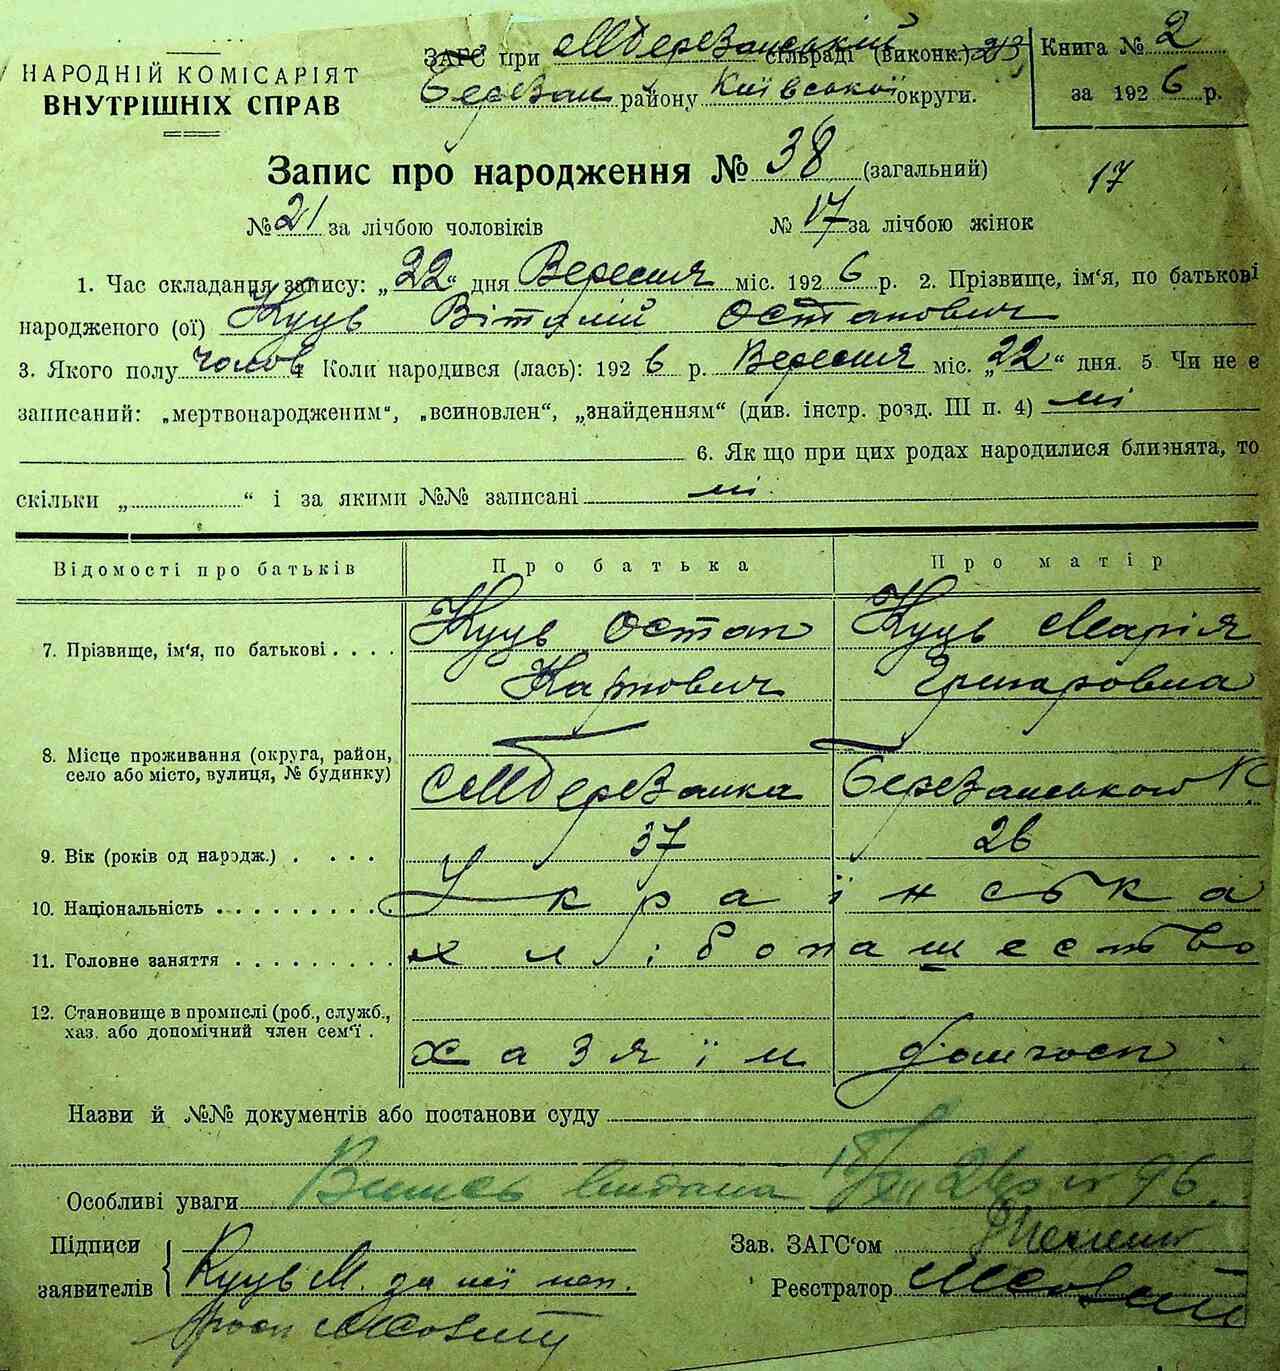 НАРОДНІЙ КОМІСАРІЯТ
ВНУТРІШНІХ СПРАВ
ЗАГС при МБерезанський сільраді (виконк.)
Березан району Київської округи.
Книга № 2
за 1926 р.
Запис про народження № 38 (загальний)
17
№ 21 за лічбою чоловіків № 17 за лічбою жінок
1. Час складання запису: „22“ дня Вересня міс. 1926 р. 2. Прізвище, ім‘я, по батькові
народженого (ої) Куць Віталій Остапович
3. Якого полу чолов 4 Коли народився (лась): 1926 р. Вересня міс. „22“ дня. 5 Чи не є
записаний: „мертвонародженим“, „всиновлен“, „знайденням“ (див. інстр. розд. III п. 4) ні
6. Як що при цих родах народилися близнята, то
скільки „ “ і за якими №№ записані ні
Відомості про батьків Про батька Про матір
7. Прізвище, ім‘я, по батькові Куць Остап Куць Марія
Карпович Григоровна
8. Місце проживання (округа, район,
село або місто, вулиця, № будинку)
с МБерезанка Березанського К
9. Вік (років од народж.) 37 26
10. Національність Українська
11. Головне заняття хлібопашество
12. Становище в промислі (роб., служб.,
хаз. або допомічний член сем‘ї
хазяїн домгосп
Назви й №№ документів або постанови суду
Особливі уваги Випись видана 18/XII 26 р № 96
Підписи
заявителів
Куць М. за неї неп.
Зав. ЗАГС‘ом
Реєстратор